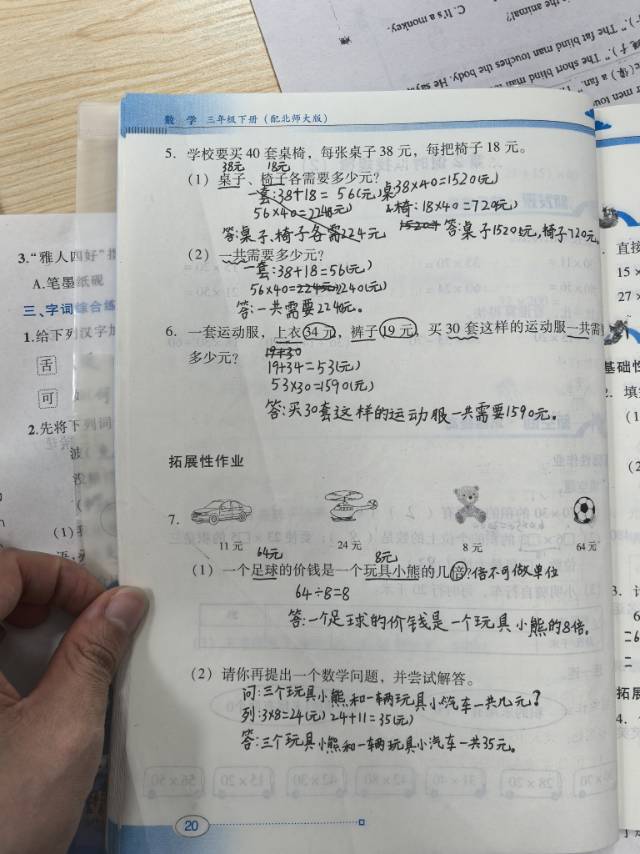 C. It's a monkey.
the animal?
" The fat blind man touches the body. He says
" The short blind man
数 学 三年级下册（配北师大版）
5. 学校要买 40 套桌椅，每张桌子 38 元，每把椅子 18 元。
38元 18元
（1）桌子、椅子各需要多少元？
一套:38+18=56(元) 桌38×40=1520(元)
56×40=2240(元) 椅:18×40=720(元)
答:桌子、椅子各需224元 答:桌子1520元,椅子720元
（2）一共需要多少元？
一套:38+18=56(元)
56×40=2240(元)
答:一共需要2240元。
6. 一套运动服，上衣 34 元，裤子 19 元，买 30 套这样的运动服一共需
多少元？
19+30
19+34=53(元)
53×30=1590(元)
答:买30套这样的运动服一共需要1590元。
拓展性作业
7.
11 元 24 元 8 元 64 元
64元 8元
（1）一个足球的价钱是一个玩具小熊的几倍？倍不可做单位
64÷8=8
答:一个足球的价钱是一个玩具小熊的8倍。
（2）请你再提出一个数学问题，并尝试解答。
问:三个玩具小熊和一辆玩具小汽车一共几元？
列:3×8=24(元) 24+11=35(元)
答:三个玩具小熊和一辆玩具小汽车一共35元。
20
3.“雅人四好”指
A.笔墨纸砚
三、字词综合练
1.给下列汉字加
舌
可
2.先将下列词
（1）
直接
15×
27×
基础性
2. 填
（1）
（2）
拓展
4.